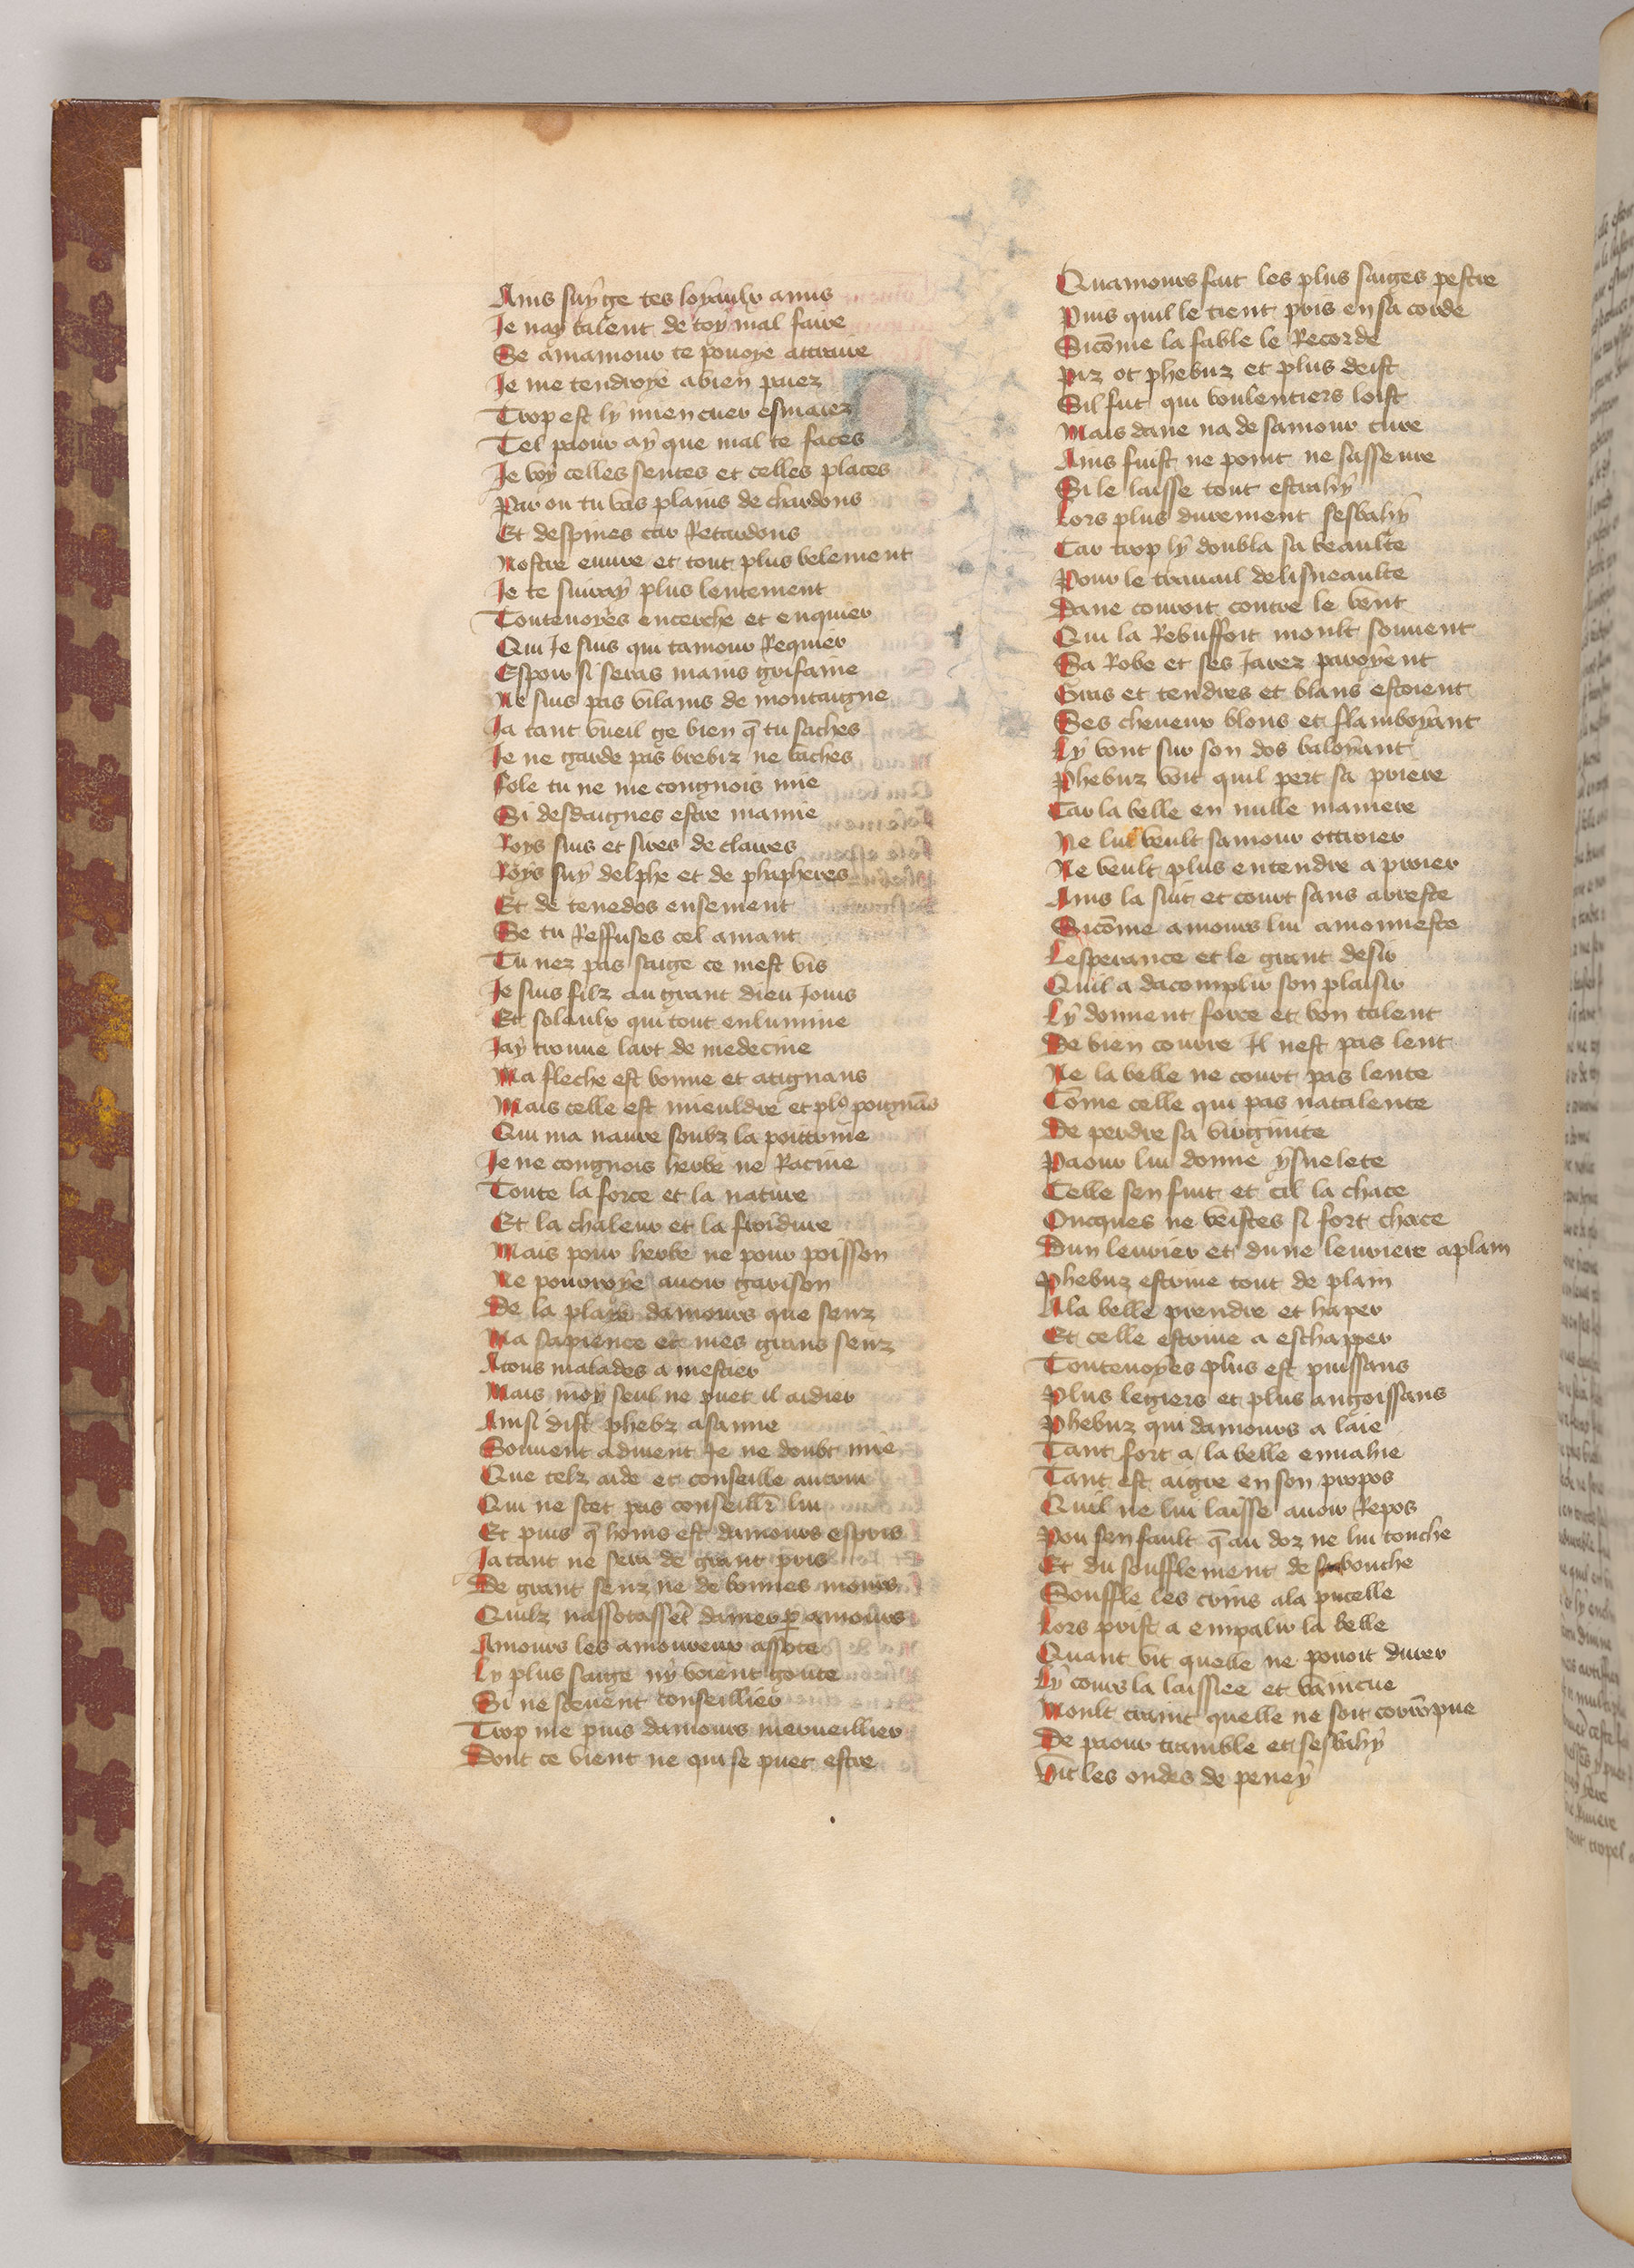 Ains suy ge tes loyaulx amis
Je nay talent de toy mal faire
Se a mamour te povoye attraire
Je me tendroye a bien paiez
Trop est ly mien cuer esmaiez
Tel paour ay que mal te faces
Je voy celles sentes et celles places
Par ou tu vas plains de chardons
Et despines car Retardons
Nostre euure et tout plus belement
Je te suivray plus lentement
Toutevoyes encerche et enquier
Qui Je suis qui tamour Requier
Espoir si seras mains grifaine
Ne suis pas vilains de montaigne
Ja tant vueil ge bien q̄ tu saches
Je ne garde pas brebiz ne vaches
Fole tu ne me congnois mie
Si desdaignes estre mamie
Roys suis et sires de claires
Roys suy delphe et de phapheres
Et de tenedos ensement
Se tu Reffuses cel amant
Tu nez pas saige ce mest vis
Je suis filz au grant dieu Jovis
Et solaulx qui tout enlumine
Jay trouue lart de medecine
Ma fleche est bonne et atignans
Mais celle est mieuldre et plꝰ poignās
Qui ma navre soubz la poittrine
Je ne congnois herbe ne Racine
Toute la force et la nature
Et la chaleur et la froidure
Mais pour herbe ne pour poisson
Ne pourroye avoir garison
De la playe damours que senz
Ma sapience et mes grans senz
A tous malades a mestier
Mais moy seul ne puet il aidier
Ainsi dist phebz a sanne
Souvent advient Je ne doubt mie
Que telz aide et conseille autrui
Qui ne scet pas conseill̄r lui
Et puis q̄ homs est damours espris
Ja tant ne sera de grant pris
De grant senz ne de bonnes mours
Quilz nassotassēt damer ꝑ amours
Amours les amoureux assote
Ly plus saige ny voient goute
Si ne scevent conseillier
Trop me puis damours merveillier
Dont ce vient ne qui se puet estre
Quamours fait les plus saiges pestre
Puis quil le tient pris en sa corde
Sicōme la fable le Recorde
Piz ot phebuz et plus deist
Sil fut qui voulentiers loist
Mais dane na de samour cure
Ains fuist ne point ne sasseure
Si le laisse tout estrahy
Lors plus durement sesbahy
Car trop ly doubla sa beaulte
Pour le travail delisneaulte
Dane couroit contre le vent
Qui la Rebuffoit moult souvent
Sa Robe et ses Jarez paroyent
Gras et tendres et blans estoient
Ses cheveux blons et flamboyant
Ly vont sur son dos baloyant
Phebuz voit quil pert sa priere
Car la belle en nulle maniere
Ne lui veult samour ottroier
Ne veult plus entendre a proier
Ains la suit et court sans arreste
Sicōme amours lui amonneste
Lesperance et le grant desir
Quil a dacomplir son plaisir
Ly donnent force et bon talent
De bien courre Il nest pas lent
Ne la belle ne court pas lente
Cōme celle qui pas natalente
De perdre sa virginite
Paour lui donne ysnelete
Celle sen fuit et cil la chace
Oncques ne veistes si fort chace
Dun levrier et dune levriere aplain
Phebuz estrive tout de plain
A la belle prendre et haper
Et celle estrive a eschapper
Toutevoyes plus est puissans
Plus legiers et plus angoissans
Phebuz qui damours a laie
Tant fort a la belle envahie
Tant est aigre en son propos
Quil ne lui laisse avoir Repos
Pou sen fault q̄ au doz ne lui touche
Et du soufflement de sa bouche
Souffle les crins a la pucelle
Lors prist a empalir la belle
Quant vit quelle ne povoit durer
Ly cours la laissiee et vaincue
Moult craint quelle ne soit corrōpue
De paour tramble et sesbahy
Vit les ondes de peney